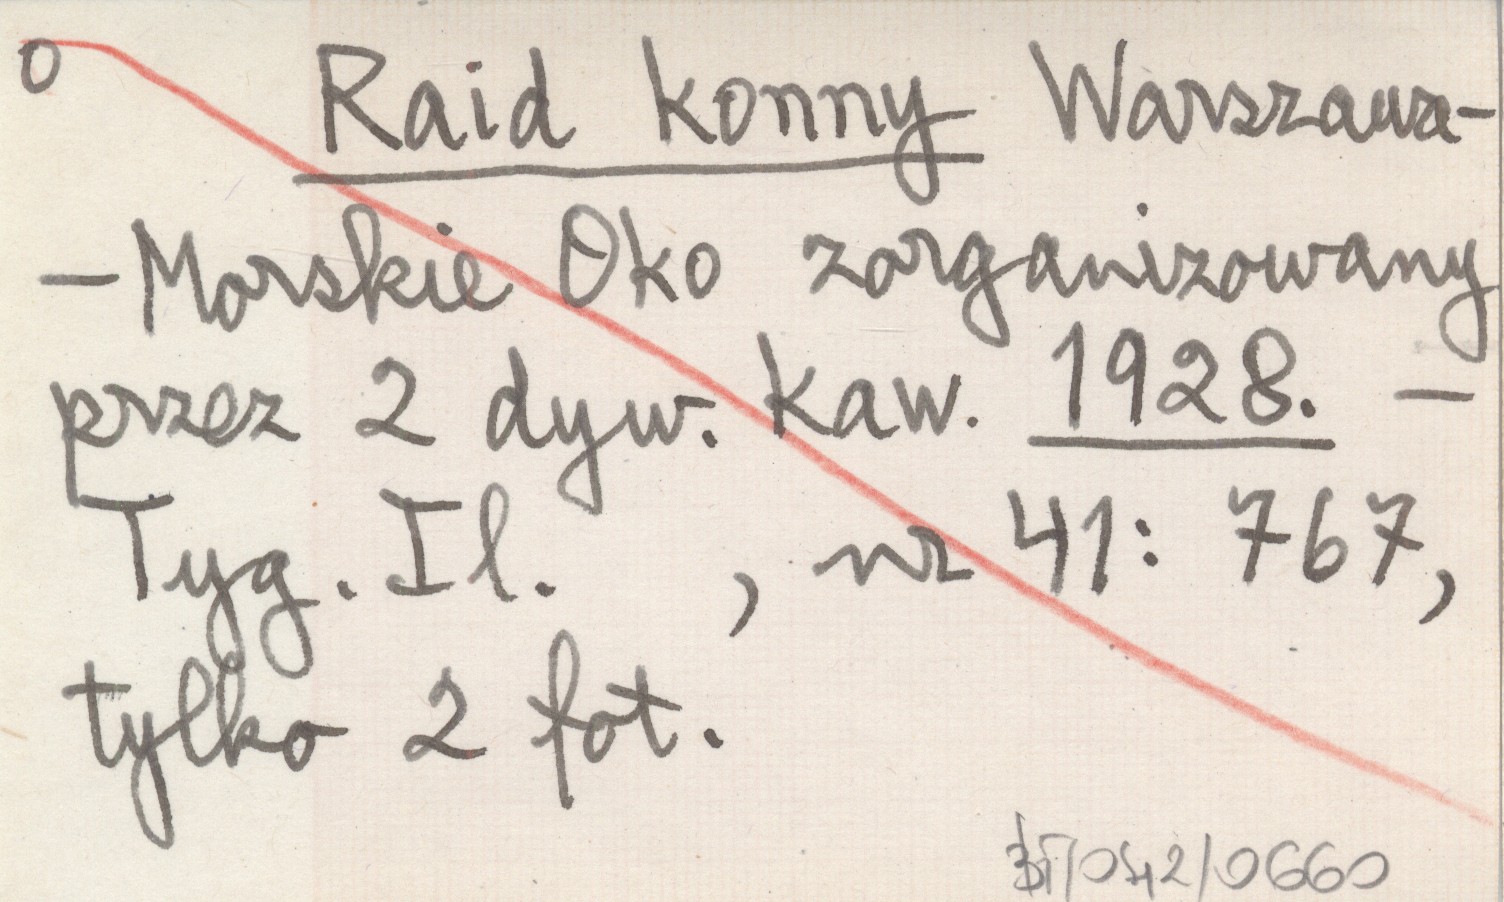 0 Raid konny Warszawa-
- Morskie Oko zorganizowany
przez 2 dyw. kaw. 1928. -
Tyg. Il. , nr 41: 767,
tylko 2 fot.
/042/0660